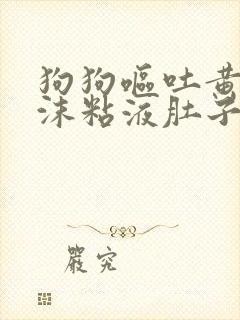 狗狗呕吐黄
沫粘液肚子
严究